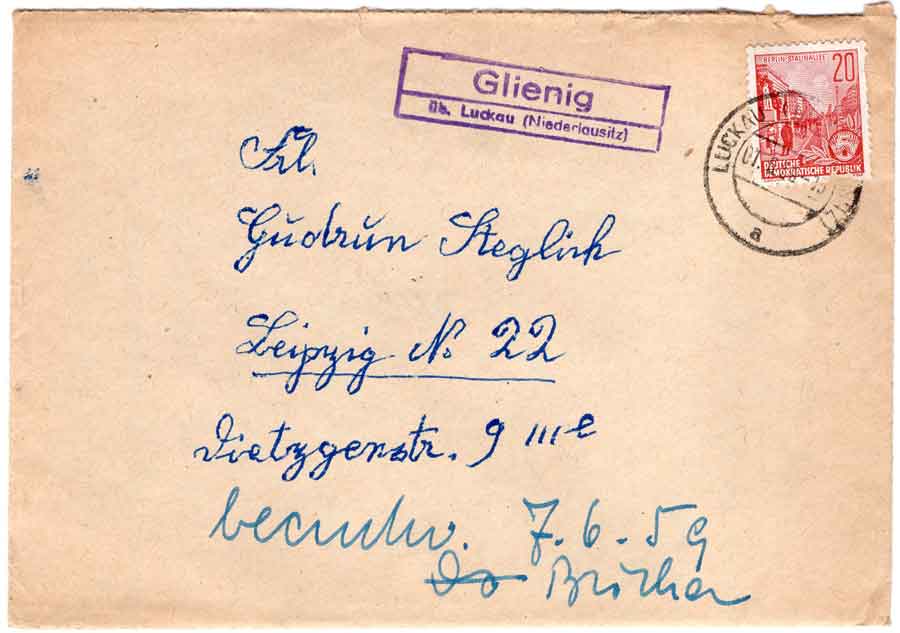 Glienig
üb. Luckau (Niederlausitz)
BERLIN-STALINALLEE
20
DEUTSCHE
DEMOKRATISCHE REPUBLIK
LUCKAU
a
Frl.
Gudrun Steglich
Leipzig No 22
Dietzgenstr. 9 IIIe
7.6.59